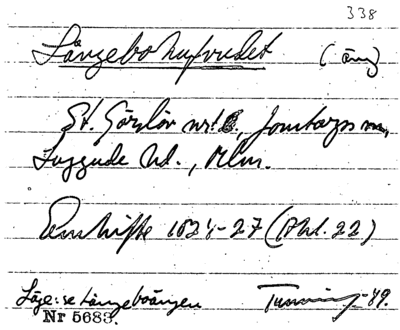 338
Långebohufvudet (äng)
St. Görslöv nr 8, Jonstorps sn,
Luggude hd., Mlm.
Enskifte 1824-27 (Akt. 22)
Läge: se Långeboängen -49.
Nr 5683.